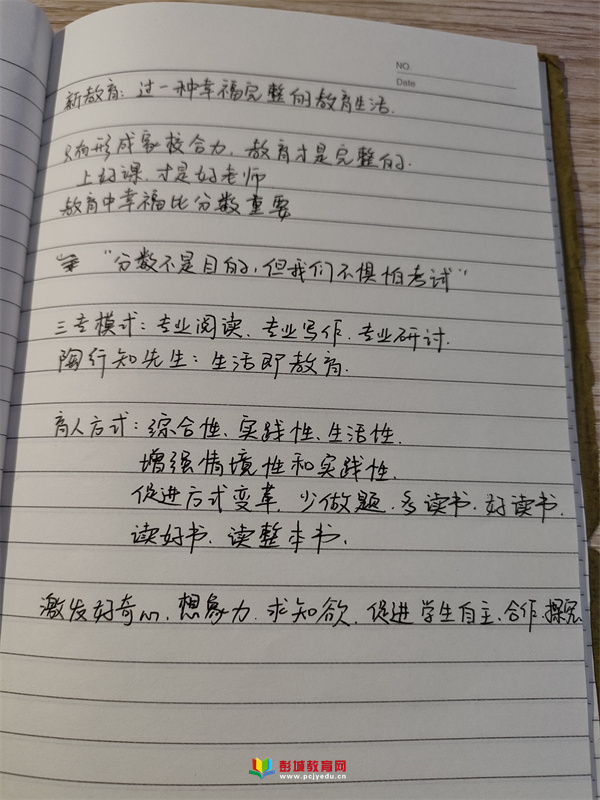 NO.
Date
新教育：过一种幸福完整的教育生活.
只有形成家校合力，教育才是完整的.
上好课，才是好老师
教育中幸福比分数重要
"分数不是目的，但我们不惧怕考试"
三专模式：专业阅读、专业写作、专业研讨.
陶行知先生：生活即教育.
育人方式：综合性、实践性、生活性.
增强情境性和实践性.
促进方式变革，少做题，多读书，好读书，
读好书，读整本书.
激发好奇心，想象力，求知欲，促进学生自主、合作、探究
彭城教育网
www.pcjyedu.cn